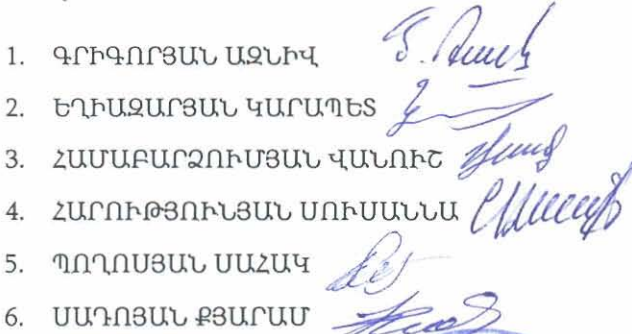 1. ԳՐԻԳՈՐՅԱՆ ԱԶՆԻՎ
2. ԵՂԻԱԶԱՐՅԱՆ ԿԱՐԱՊԵՏ
3. ՀԱՄԲԱՐՁՈՒՄՅԱՆ ՎԱՆՈՒՇ
4. ՀԱՐՈՒԹՅՈՒՆՅԱՆ ՍՈՒՍԱՆՆԱ
5. ՊՈՂՈՍՅԱՆ ՍԱՀԱԿ
6. ՍԱԴՈՅԱՆ ՔՅԱՐԱՄ